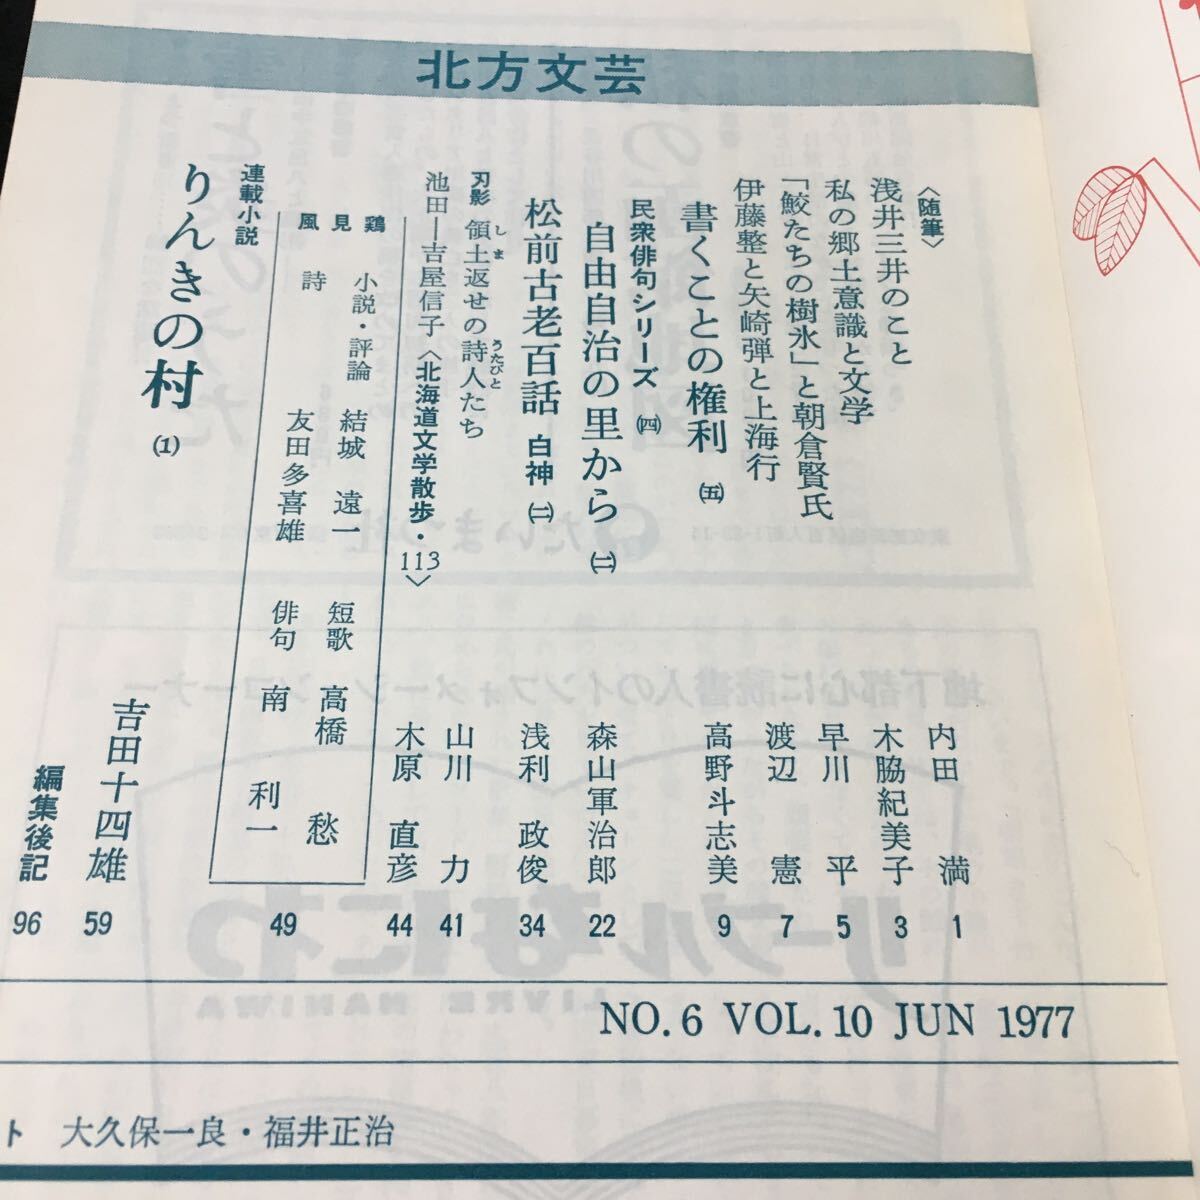 北方文芸
〈随筆〉
浅井三井のこと 内田 満 1
私の郷土意識と文学 木脇紀美子 3
「鮫たちの樹氷」と朝倉賢氏 早川 平 5
伊藤整と矢崎弾と上海行 渡辺 憲 7
書くことの権利 ㈤ 高野斗志美 9
民衆俳句シリーズ ㈣
自由自治の里から ㈡ 森山軍治郎 22
松前古老百話 白神 ㈡ 浅利 政俊 34
刃影 領土返せの詩人たち 山川 力 41
しま
うたびと
池田―吉屋信子〈北海道文学散歩・113〉 木原 直彦 44
風見鶏
小説・評論 結城 遠一 短歌 高橋 愁
詩 友田多喜雄 俳句 南 利一 49
連載小説
りんきの村 (1) 吉田十四雄 59
編集後記 96
NO.6 VOL.10 JUN 1977
ト 大久保一良・福井正治